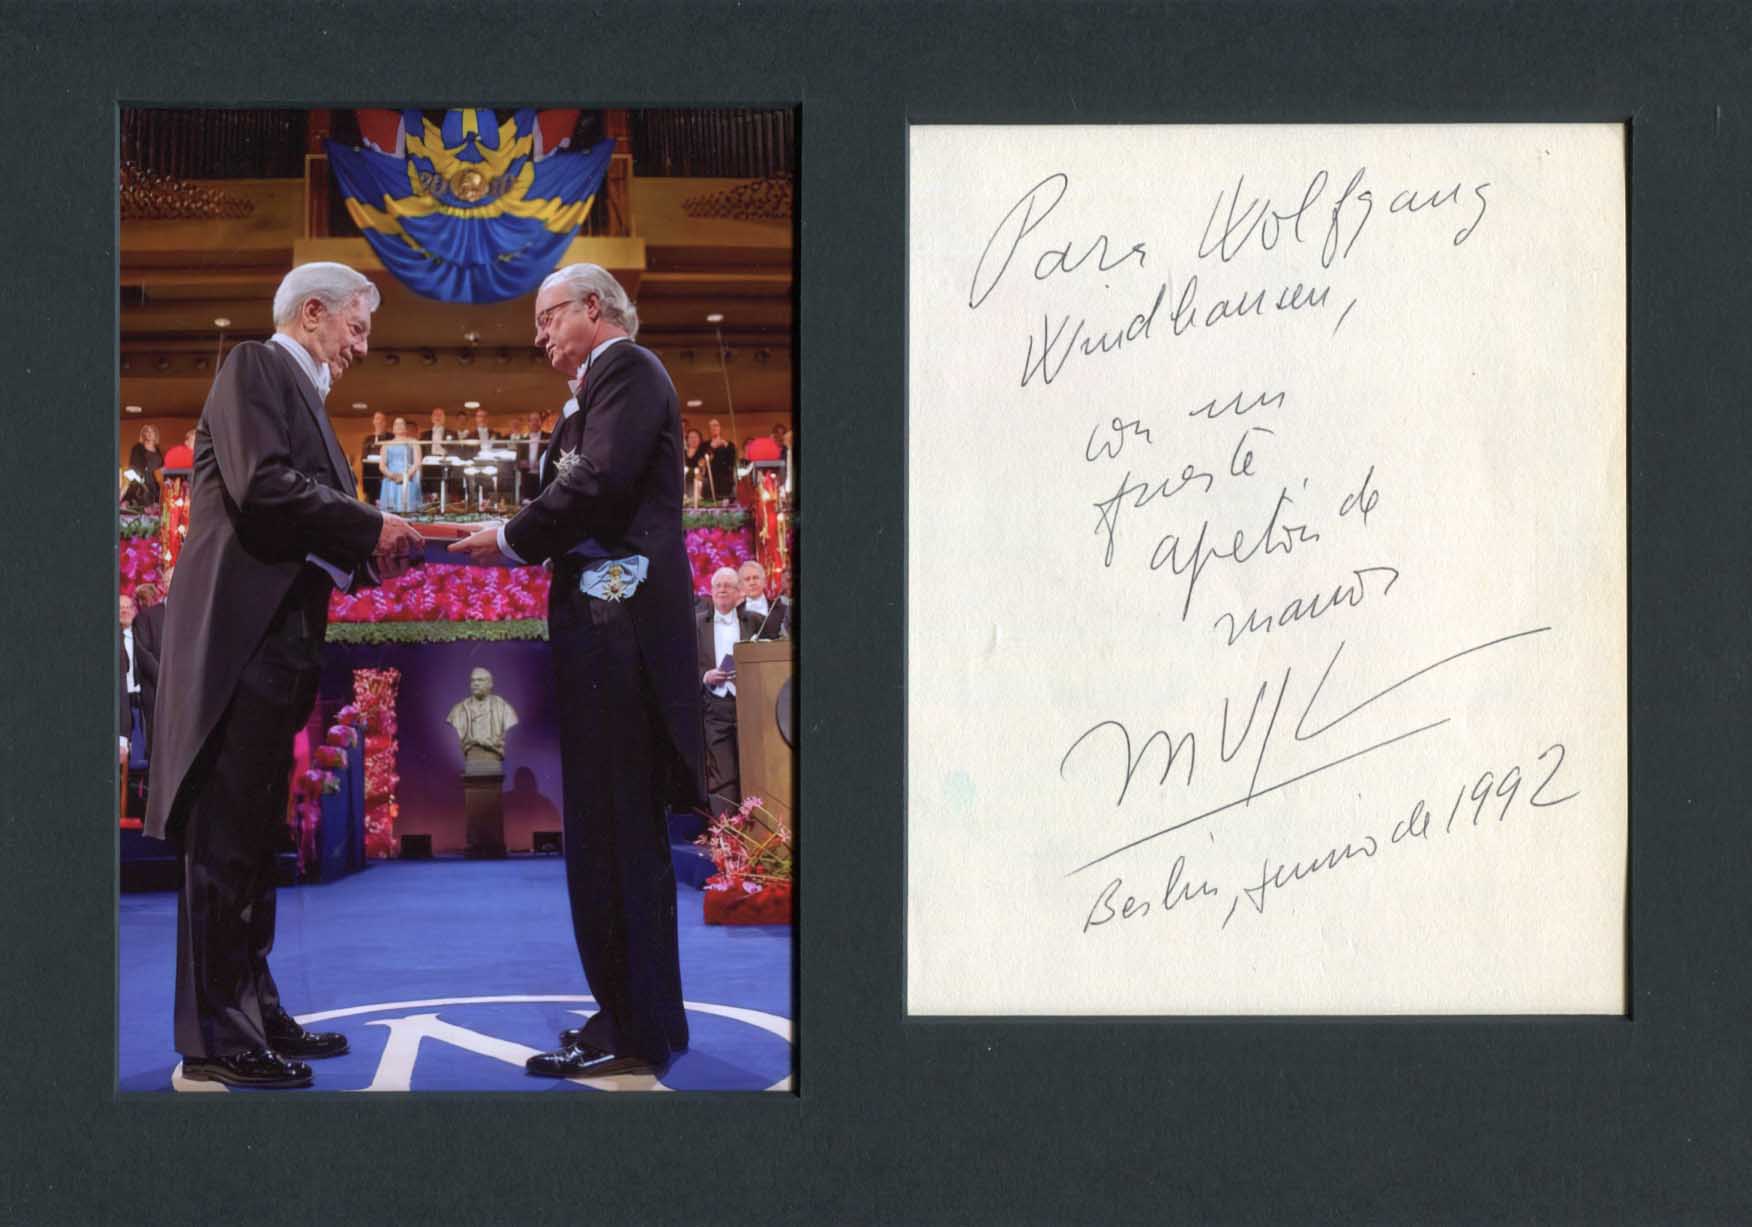 Para Wolfgang
Windhausen,
con un
fuerte
apretón de
manos
MVLL
Berlin, junio de 1992
N